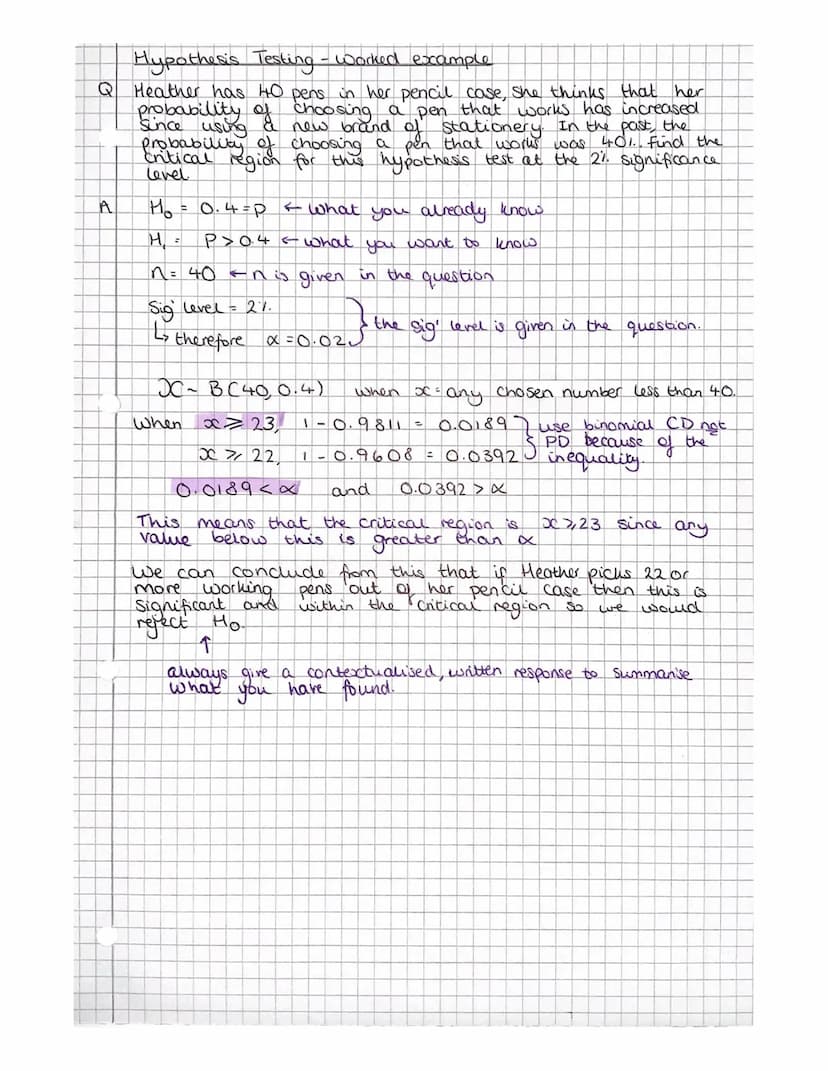 Hypothesis Testing - worked example
Q Heather has 40 pens in her pencil case, she thinks that her
probability of choosing a pen that works has increased
since using a new brand of stationery. In the past, the
probability of choosing a pen that works was 40%. Find the
critical region for this hypothesis test at the 2% significance
level
A H₀ = 0.4 = p ← what you already know
H₁ = P > 0.4 ← what you want to know
n = 40 ← n is given in the question
Sig' level = 2%.
↳ therefore α = 0.02 } the sig' level is given in the question.
X ~ B(40, 0.4) when x = any chosen number less than 40.
when x ⩾ 23, 1 - 0.9811 = 0.0189 } use binomial CD not
PD because of the
x ⩾ 22, 1 - 0.9608 = 0.0392 inequality.
0.0189 < α and 0.0392 > α
This means that the critical region is x ⩾ 23 since any
value below this is greater than α
We can conclude from this that if Heather picks 22 or
more working pens out of her pencil case then this is
significant and within the critical region so we would
reject H₀.
↑
always give a contextualised, written response to summarise
what you have found.